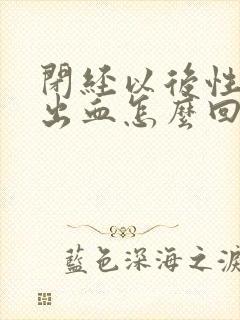 閉經以後性
出血怎麼回
藍色深海之淚